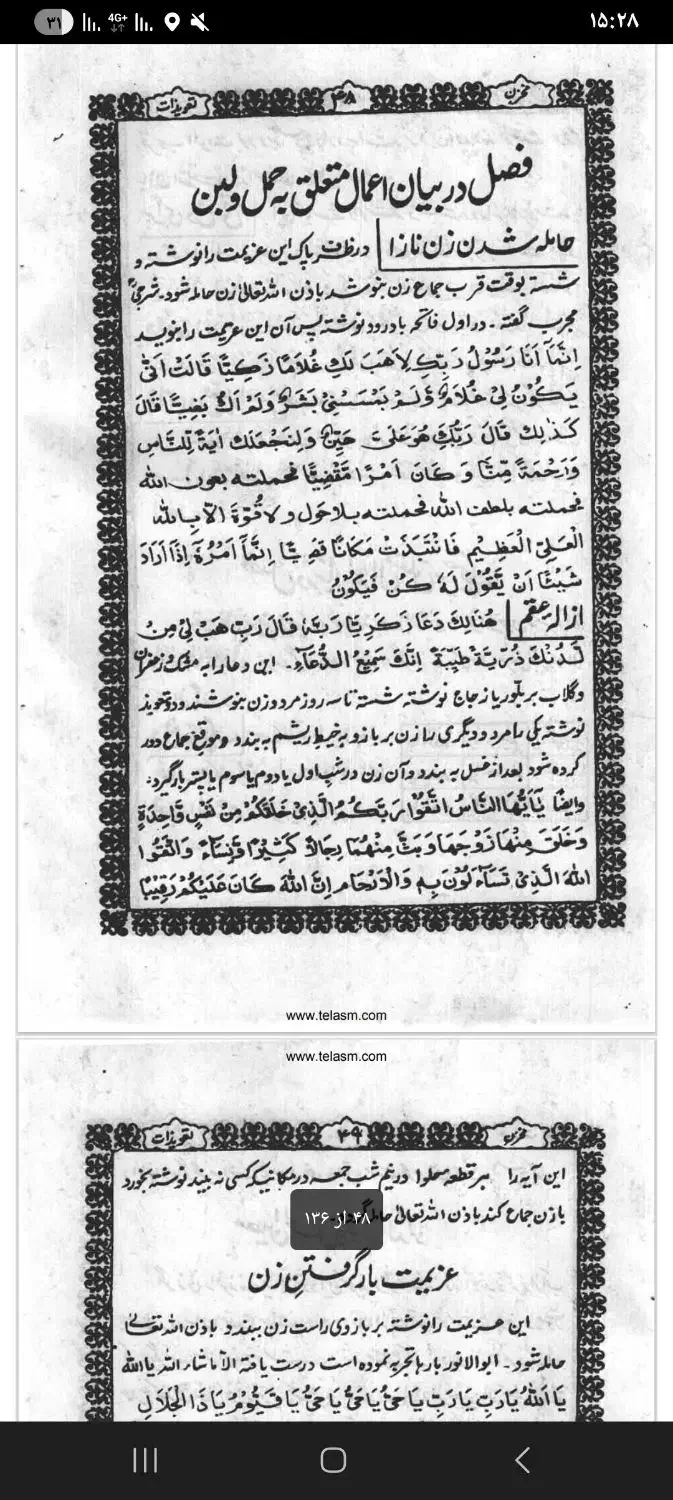 ۱۵:۲۸
4G+
۳۱
مخزن
۴۸
تعویذات
فصل در بیان اعمال متعلق به حمل و لبن
حامله شدن زن نازا در ظرف پاک این عزیمت را نوشته و
شسته بوقت قرب جماع زن بنوشد باذن الله تعالیٰ زن حامله شود۔ شرجیؒ
مجرب گفته۔ در اول فاتحه با درود نوشته پس آن این عزیمت را بنوید
اِنَّمَآ اَنَا رَسُوْلُ رَبِّكِ لِاَهَبَ لَكِ غُلَامًا زَكِيًّا قَالَتْ اَنّٰى
يَكُوْنُ لِيْ غُلَامٌ وَّلَمْ يَمْسَسْنِيْ بَشَرٌ وَلَمْ اَكُ بَغِيًّا قَالَ
كَذٰلِكِ قَالَ رَبُّكِ هُوَ عَلَيَّ هَيِّنٌ وَلِنَجْعَلَكَ اٰيَةً لِّلنَّاسِ
وَرَحْمَةً مِّنَّا وَكَانَ اَمْرًا مَّقْضِيًّا فحملته بعون الله
فحملته بلطف الله فحملته بلا حول و لا قُوَّةَ اِلَّا بِالله
الْعَلِيِّ الْعَظِيْمِ فَانْتَبَذَتْ مَكَانًا قَصِيًّا اِنَّمَآ اَمْرُهٗ اِذَآ اَرَادَ
شَيْئًا اَنْ يَّقُوْلَ لَهٗ كُنْ فَيَكُوْنُ
ازاله عقم هُنَالِكَ دَعَا زَكَرِيَّا رَبَّهٗ قَالَ رَبِّ هَبْ لِيْ مِنْ
لَّدُنْكَ ذُرِّيَّةً طَيِّبَةً اِنَّكَ سَمِيْعُ الدُّعَآءِ۔ این دعا را به مشک و زعفران
و گلاب بر بلور یا زجاج نوشته شسته تا سه روز مرد و زن بنوشند و دو تعویذ
نوشته یکی را مرد و دیگری را زن بر بازو به خیط ریشم به بندد و موقع جماع دور
کرده شود بعد از غسل به بندد و آن زن در شب اول یا دوم یا سوم یا پستر بار گیرد۔
وایضًا يٰٓاَيُّهَا النَّاسُ اتَّقُوْا رَبَّكُمُ الَّذِيْ خَلَقَكُمْ مِنْ نَّفْسٍ وَّاحِدَةٍ
وَخَلَقَ مِنْهَا زَوْجَهَا وَبَثَّ مِنْهُمَا رِجَالًا كَثِيْرًا وَّنِسَآءً وَاتَّقُوا
اللّٰهَ الَّذِيْ تَسَآءَلُوْنَ بِهٖ وَالْاَرْحَامَ اِنَّ اللّٰهَ كَانَ عَلَيْكُمْ رَقِيْبًا
www.telasm.com
www.telasm.com
مخزن
۴۹
تعویذات
این آیه را بر قطعه حلوا در نیم شب جمعه در مکانیکه کسی نه بیند نوشته بخورد
با زن جماع کند باذن الله تعالیٰ
۴۸ از ۱۳۶
عزیمت بار گرفتن زن
این عزیمت را نوشته بر بازوی راست زن ببندد باذن الله تعالیٰ
حامله شود۔ ابوالانور بارها تجربه نموده است درست یافته الا ماشاء الله یا الله
يَا اَللهُ يَا رَبِّ يَا رَبِّ يَا حَيُّ يَا حَيُّ يَا حَيُّ يَا قَيُّوْمُ يَا ذَا الْجَلَالِ